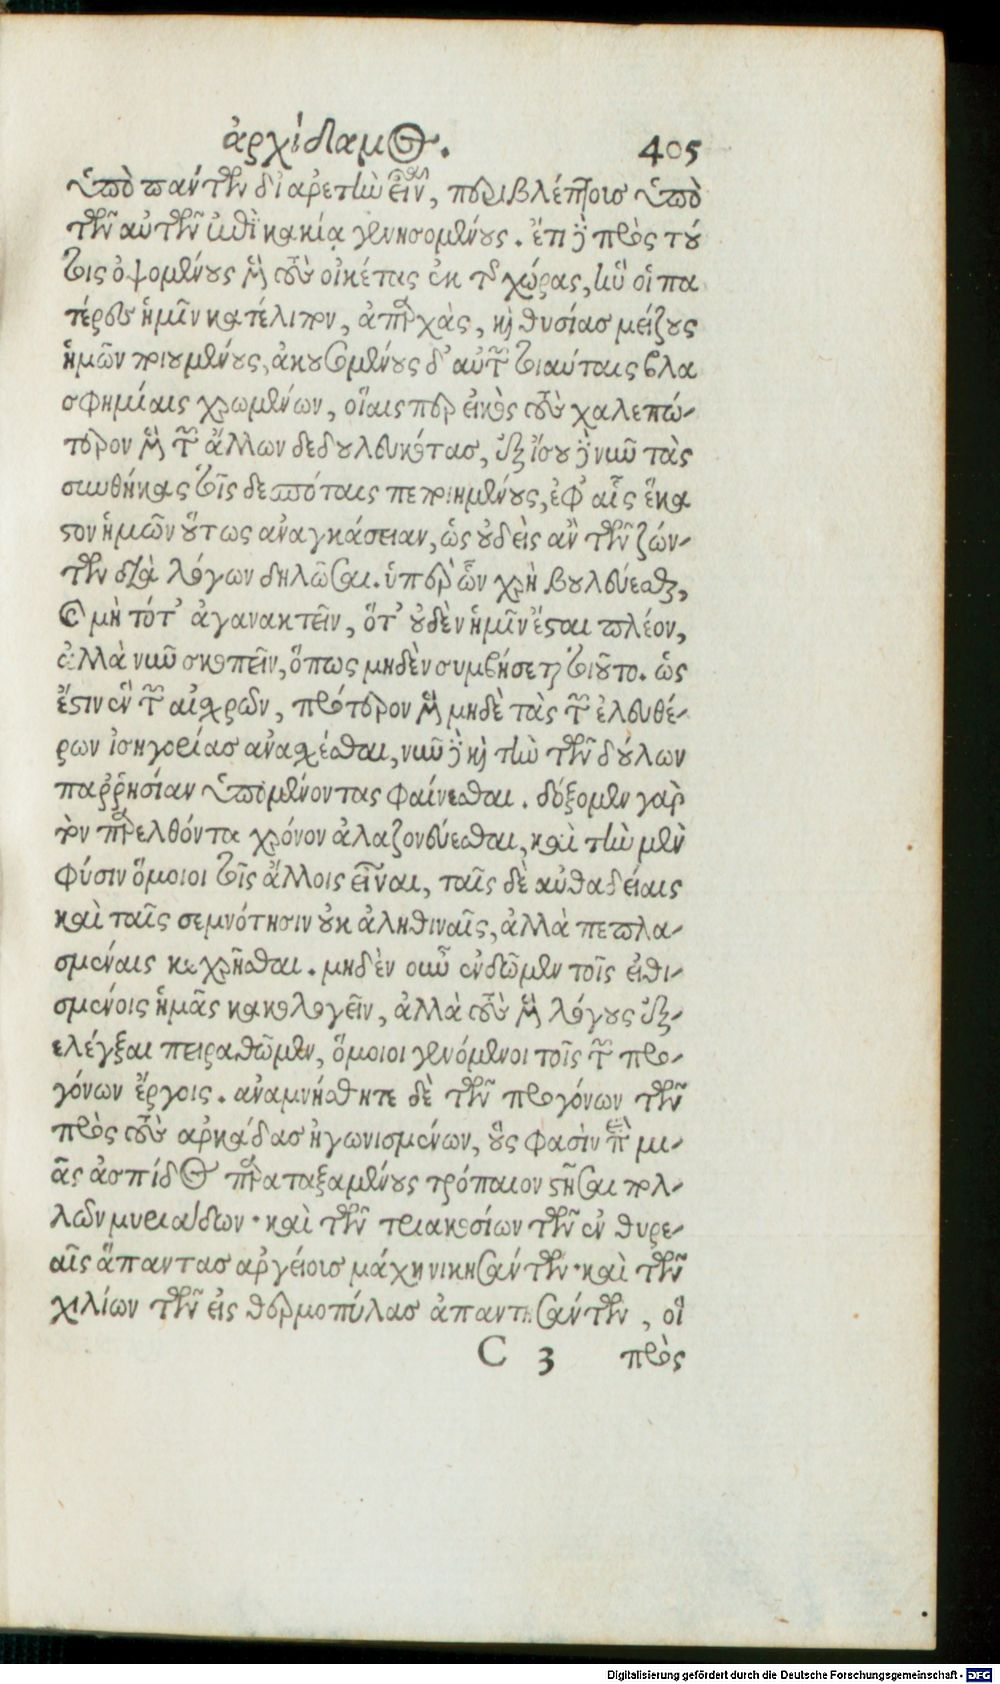 ἀρχίδαμος. 405
ὑπὸ πάντων δι᾽ ἀρετὴν εἶναι, περιβλέπτοις ὑπὸ
τῶν αὐτῶν ἐπὶ κακίᾳ γενησομένους. ἔτι δὲ πρὸς τού
τοις ὀψομένους μὲν τοὺς οἰκέτας ἐκ τῆς χώρας, ἣν οἱ πα
τέρες ἡμῖν κατέλιπον, ἀπαρχὰς, καὶ θυσίας μείζους
ἡμῶν ποιουμένους, ἀκουσομένους δ᾽ αὐτῶν τοιαύταις βλα
σφημίαις χρωμένων, οἵαις περ εἰκὸς τοὺς χαλεπώ-
τερον μὲν τῶν ἄλλων δεδουλευκότας, ἐξ ἴσου δὲ νῦν τὰς
συνθήκας τοῖς δεσπόταις πεποιημένους, ἐφ᾽ αἷς ἕκα
στον ἡμῶν οὕτως ἀναγκάσειαν, ὡς οὐδεὶς ἂν τῶν ζών-
των διὰ λόγων δηλῶσαι. ὑπὲρ ὧν χρὴ βουλεύεσθαι,
καὶ μὴ τότ᾽ ἀγανακτεῖν, ὅτ᾽ οὐδὲν ἡμῖν ἔσται πλέον,
ἀλλὰ νῦν σκοπεῖν, ὅπως μηδὲν συμβήσεται τοιοῦτο. ὡς
ἔστιν ἓν τῶν αἰσχρῶν, πρότερον μὲν μηδὲ τὰς τῶν ἐλευθέ-
ρων ἰσηγορίας ἀνασχέσθαι, νῦν δὲ καὶ τὴν τῶν δούλων
παῤῥησίαν ὑπομένοντας φαίνεσθαι. δόξομεν γὰρ
τὸν παρελθόντα χρόνον ἀλαζονεύεσθαι, καὶ τὴν μὲν
φύσιν ὅμοιοι τοῖς ἄλλοις εἶναι, ταῖς δὲ αὐθαδείαις
καὶ ταῖς σεμνότησιν οὐκ ἀληθιναῖς, ἀλλὰ πεπλα-
σμέναις κεχρῆσθαι. μηδὲν οὖν ἐνδῶμεν τοῖς εἰθι-
σμένοις ἡμᾶς κακολογεῖν, ἀλλὰ τοὺς μὲν λόγους ἐξ-
ελέγξαι πειραθῶμεν, ὅμοιοι γενόμενοι τοῖς τῶν προ-
γόνων ἔργοις. ἀναμνήσθητε δὲ τῶν προγόνων τῶν
πρὸς τοὺς ἀρκάδας ἠγωνισμένων, οὕς φασὶν ἐπὶ μι-
ᾶς ἀσπίδος παραταξαμένους τρόπαιον στῆσαι πολ-
λῶν μυριάδων· καὶ τῶν τριακοσίων τῶν ἐν θυρε-
αῖς ἅπαντας ἀργείους μάχῃ νικησάντων· καὶ τῶν
χιλίων τῶν εἰς θερμοπύλας ἀπαντησάντων, οἳ
C 3 πρὸς
Digitalisierung gefördert durch die Deutsche Forschungsgemeinschaft - DFG